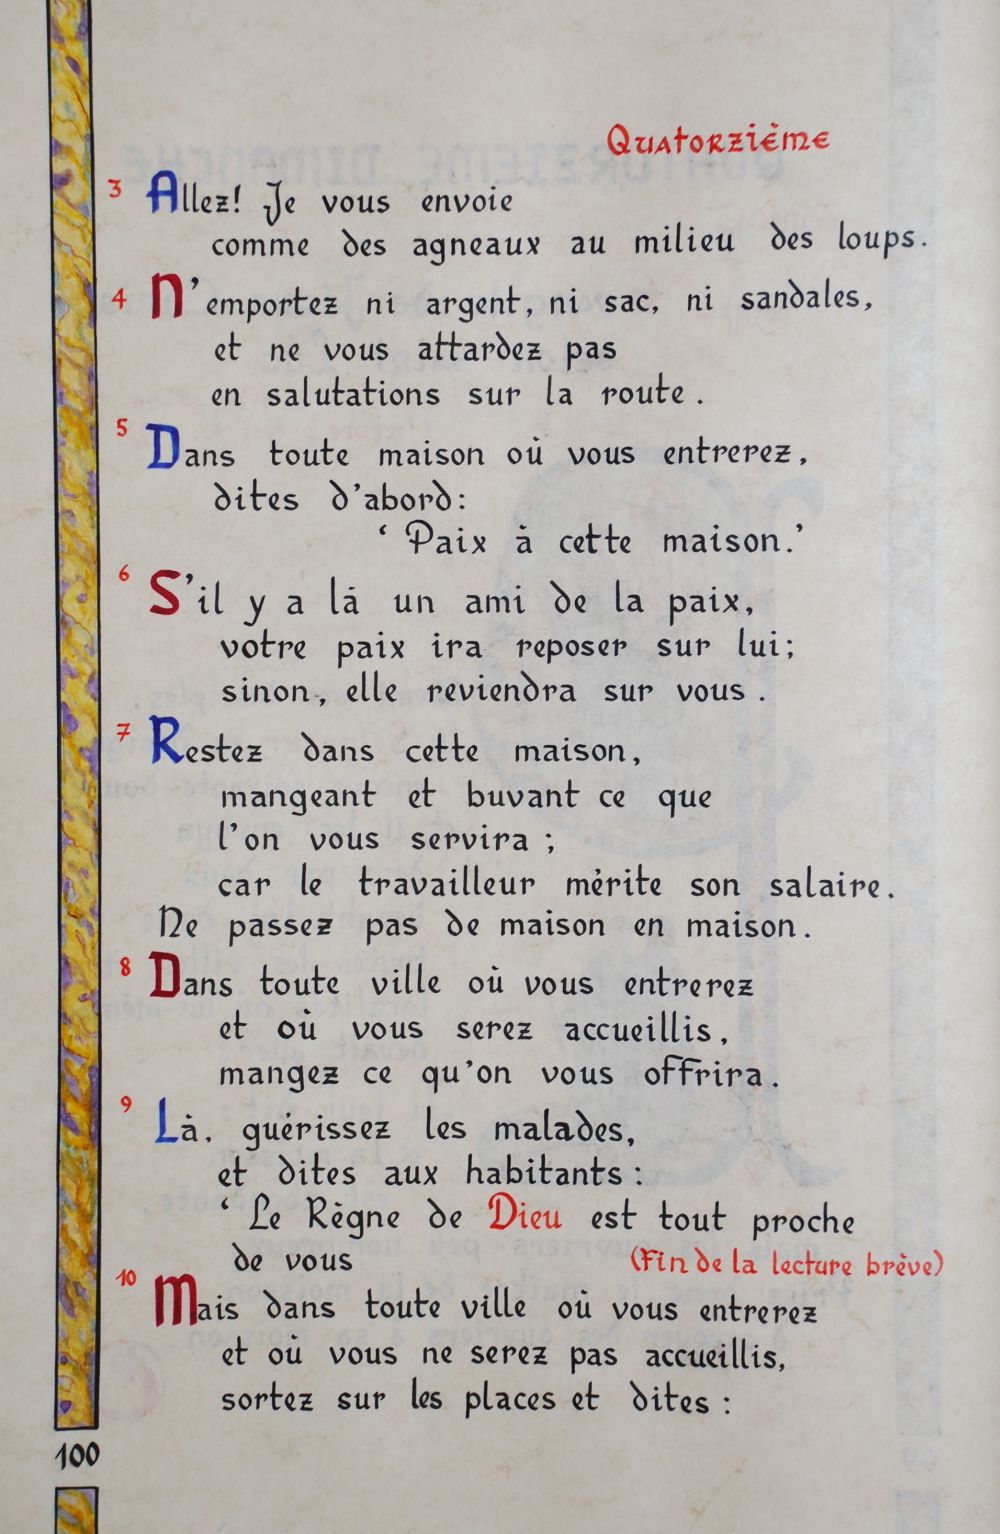 Quatorzième
3 Allez! Je vous envoie
comme des agneaux au milieu des loups.
4 N'emportez ni argent, ni sac, ni sandales,
et ne vous attardez pas
en salutations sur la route.
5 Dans toute maison où vous entrerez,
dites d'abord:
‘ Paix à cette maison.’
6 S'il y a là un ami de la paix,
votre paix ira reposer sur lui;
sinon, elle reviendra sur vous.
7 Restez dans cette maison,
mangeant et buvant ce que
l'on vous servira ;
car le travailleur mérite son salaire.
Ne passez pas de maison en maison.
8 Dans toute ville où vous entrerez
et où vous serez accueillis,
mangez ce qu'on vous offrira.
9 Là, guérissez les malades,
et dites aux habitants :
‘ Le Règne de Dieu est tout proche
de vous (Fin de la lecture brève)
10 Mais dans toute ville où vous entrerez
et où vous ne serez pas accueillis,
sortez sur les places et dites :
100